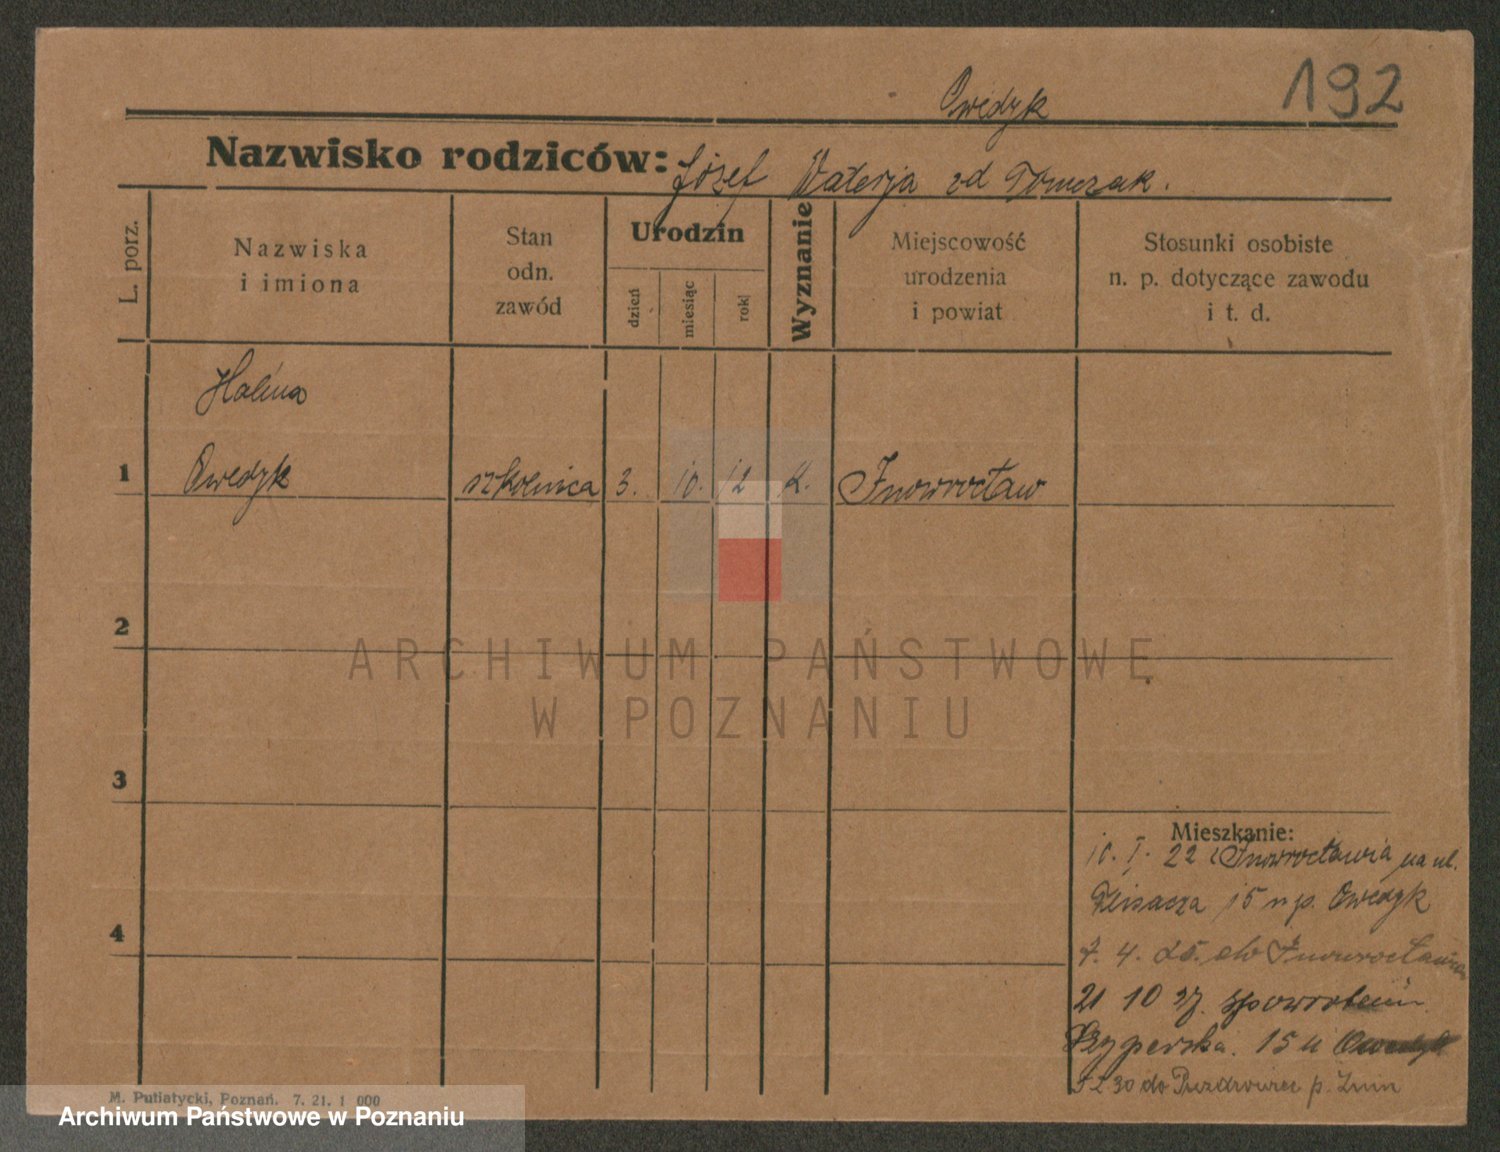 192
Owedyk
Nazwisko rodziców: Józef Walerja zd Tomczak.
L. porz.
Nazwiska
i imiona
Stan
odn.
zawód
Urodzin
dzień
miesiąc
rok
Wyznanie
Miejscowość
urodzenia
i powiat
Stosunki osobiste
n. p. dotyczące zawodu
i t. d.
Halina
1 Owedyk szkolnica 3. 10. 12 k. Inowrocław
2
3
4
Mieszkanie:
10. I. 22 z Inowrocławia na ul.
15 u p. Owedyk
7. 4. 25. do Inowrocławia
21 10 27. spowrotem
15 u Owedyk
5 2 30 do p. Żnin
M. Putiatycki, Poznań. 7. 21. 1 000
ARCHIWUM PAŃSTWOWE
W POZNANIU
Archiwum Państwowe w Poznaniu